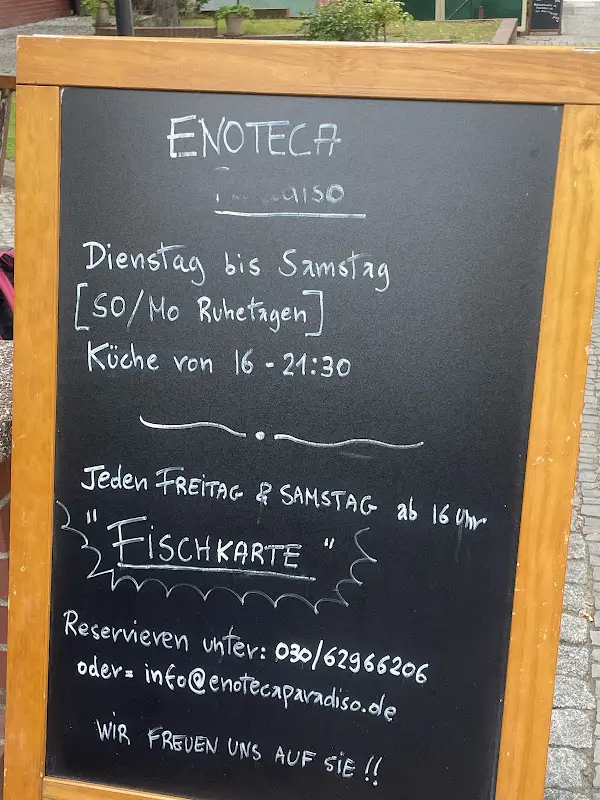 ENOTECA
Dienstag bis Samstag
[SO/Mo Ruhetagen]
Küche von 16 - 21:30
Jeden FREITAG & SAMSTAG ab 16 Uhr
"FISCHKARTE"
Reservieren unter: 030/62966206
oder= info@enotecaparadiso.de
WIR FREUEN UNS AUF SIE!!